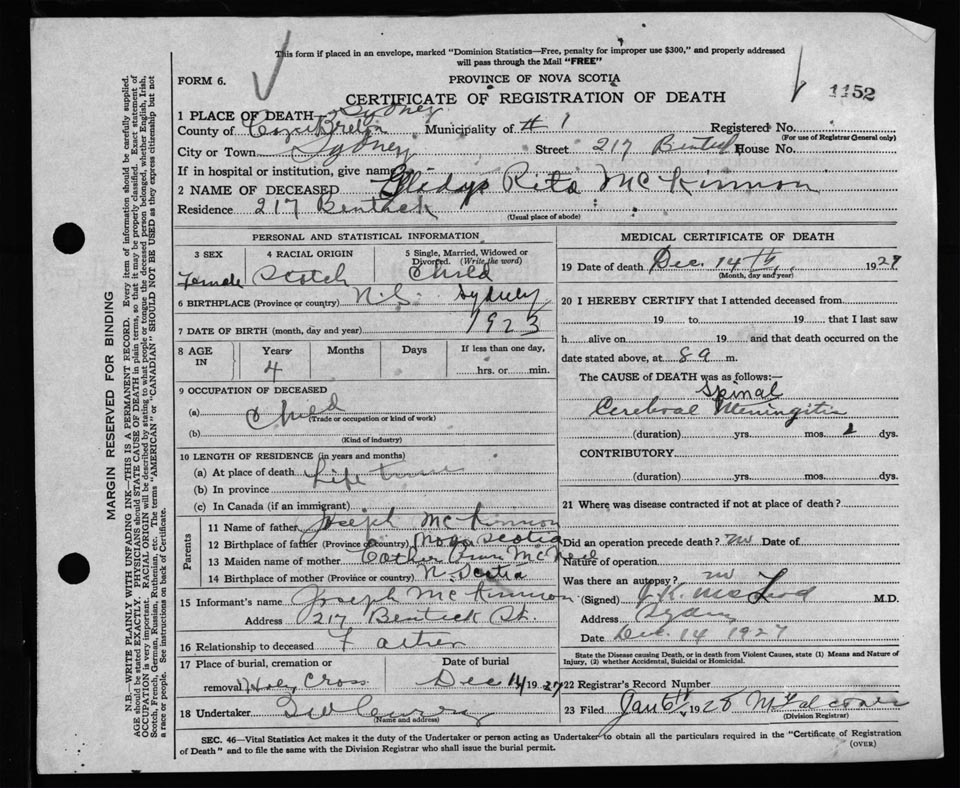 This form if placed in an envelope, marked "Dominion Statistics—Free, penalty for improper use $300," and properly addressed
will pass through the Mail "FREE"
FORM 6.
PROVINCE OF NOVA SCOTIA
CERTIFICATE OF REGISTRATION OF DEATH
1152
1 PLACE OF DEATH Sydney
County of Cape Breton Municipality of # 1 Registered No.
(For use of Registrar General only)
City or Town Sydney Street 217 House No.
If in hospital or institution, give name
2 NAME OF DECEASED Gladys Rita McKinnon
Residence 217
(Usual place of abode)
PERSONAL AND STATISTICAL INFORMATION
3 SEX
Female
4 RACIAL ORIGIN
Scotch
5 Single, Married, Widowed or
Divorced. (Write the word)
Child
6 BIRTHPLACE (Province or country) N.S. Sydney
7 DATE OF BIRTH (month, day and year) 1923
8 AGE IN
Years Months Days If less than one day,
4 hrs. or min.
9 OCCUPATION OF DECEASED
(a) Child
(Trade or occupation or kind of work)
(b)
(Kind of industry)
10 LENGTH OF RESIDENCE (in years and months)
(a) At place of death Life time
(b) In province
(c) In Canada (if an immigrant)
Parents
11 Name of father Joseph McKinnon
12 Birthplace of father (Province or country) Nova Scotia
13 Maiden name of mother Ann McNeil
14 Birthplace of mother (Province or country) N. Scotia
15 Informant's name Joseph McKinnon
Address 217 St.
16 Relationship to deceased Father
17 Place of burial, cremation or Date of burial
removal Holy Cross Dec 19 27
18 Undertaker
(Name and address)
MEDICAL CERTIFICATE OF DEATH
19 Date of death Dec. 14th, 1927
(Month, day and year)
20 I HEREBY CERTIFY that I attended deceased from
19 to 19 that I last saw
h alive on 19 and that death occurred on the
date stated above, at 8 a m.
The CAUSE of DEATH was as follows:—
Spinal
Cerebral Meningitis
(duration) yrs. mos. 2 dys.
CONTRIBUTORY
(duration) yrs. mos. dys.
21 Where was disease contracted if not at place of death?
Did an operation precede death? no Date of
Nature of operation
Was there an autopsy? no
(Signed) McLeod M.D.
Address Sydney
Date Dec. 14 1927
State the Disease causing Death, or in death from Violent Causes, state (1) Means and Nature of
Injury, (2) whether Accidental, Suicidal or Homicidal.
22 Registrar's Record Number
23 Filed Jan 6th 1928
(Division Registrar)
SEC. 46—Vital Statistics Act makes it the duty of the Undertaker or person acting as Undertaker to obtain all the particulars required in the "Certificate of Registration
of Death" and to file the same with the Division Registrar who shall issue the burial permit.
(OVER)
MARGIN RESERVED FOR BINDING
N.B.—WRITE PLAINLY WITH UNFADING INK—THIS IS A PERMANENT RECORD. Every item of information should be carefully supplied.
AGE should be stated EXACTLY. PHYSICIANS should STATE CAUSE OF DEATH in plain terms, so that it may be properly classified. Exact statement of
OCCUPATION is very important. RACIAL ORIGIN will be described by stating to what people or tongue the deceased person belonged, whether English, Irish,
Scotch, French, German, Russian, Ruthenian, etc. The terms "AMERICAN" or "CANADIAN" SHOULD NOT BE USED as they express citizenship but not
a race or people. See instructions on back of Certificate.